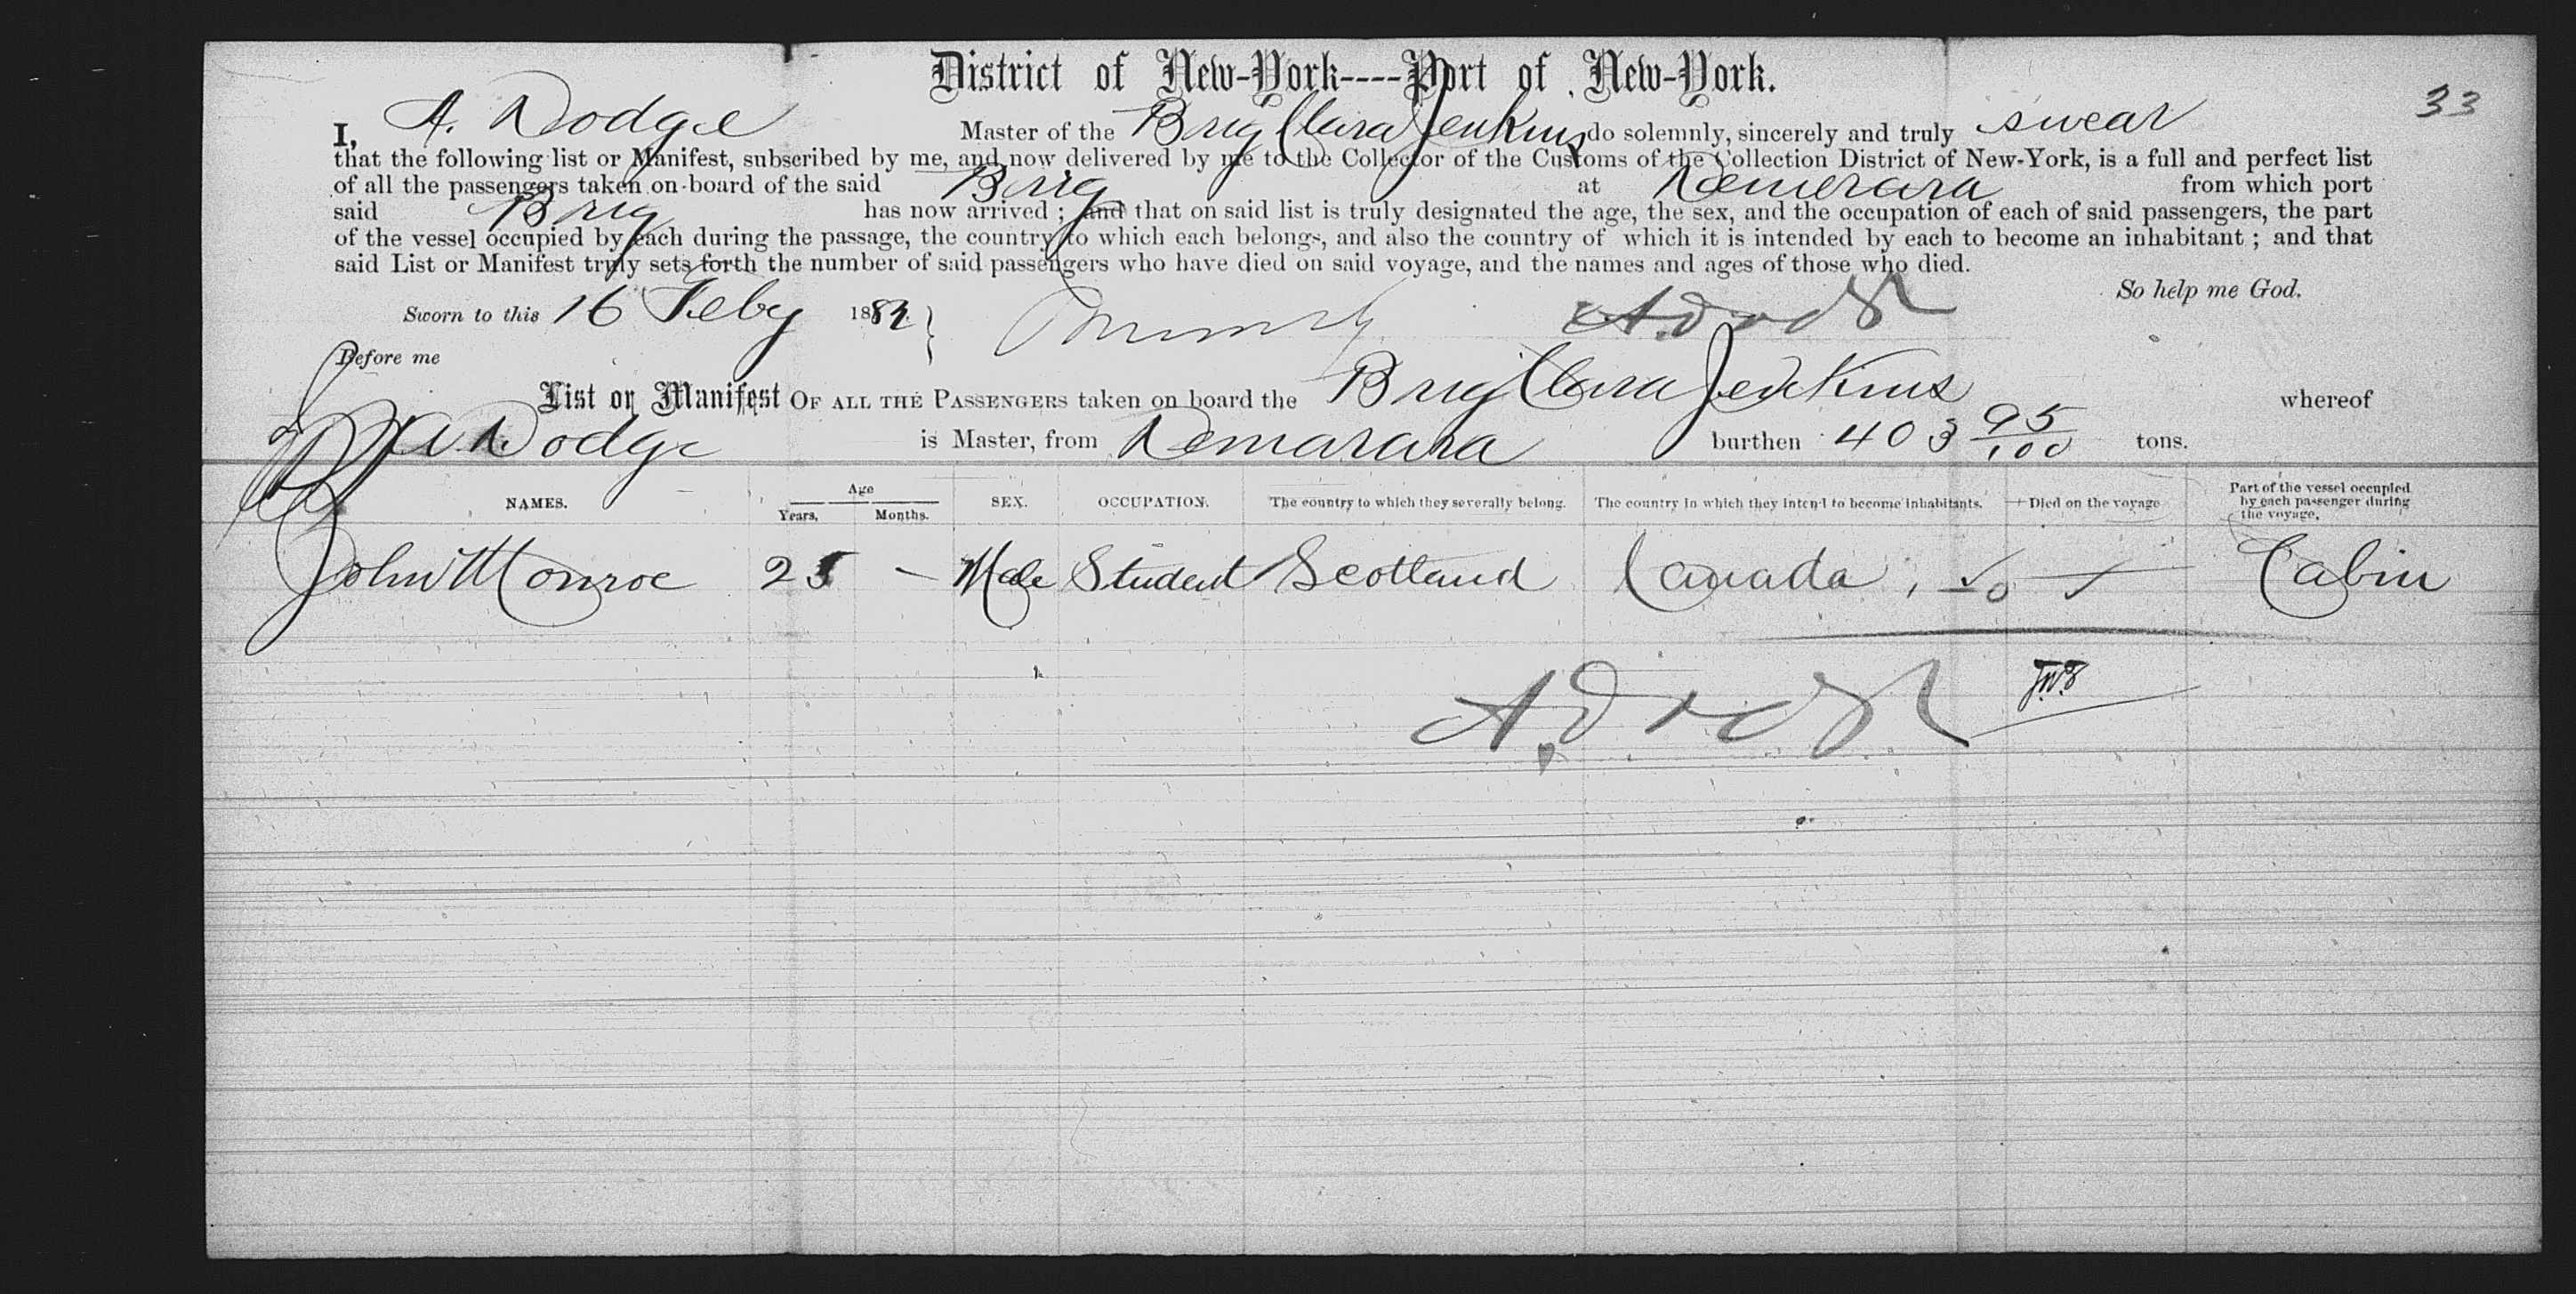 District of New-York----Port of New-York.
33
I, A. Dodge Master of the Brig Clara Jenkins do solemnly, sincerely and truly swear
that the following list or Manifest, subscribed by me, and now delivered by me to the Collector of the Customs of the Collection District of New-York, is a full and perfect list
of all the passengers taken on board of the said Brig at Demerara from which port
said Brig has now arrived ; and that on said list is truly designated the age, the sex, and the occupation of each of said passengers, the part
of the vessel occupied by each during the passage, the country to which each belongs, and also the country of which it is intended by each to become an inhabitant ; and that
said List or Manifest truly sets forth the number of said passengers who have died on said voyage, and the names and ages of those who died.
So help me God.
Sworn to this 16 Feby 1882 A Dodge
Before me
List or Manifest OF ALL THE PASSENGERS taken on board the Brig Clara Jenkins whereof
A Dodge is Master, from Demarara burthen 403 95/100 tons.
NAMES. Age Years, Months. SEX. OCCUPATION. The country to which they severally belong. The country in which they intend to become inhabitants. Died on the voyage Part of the vessel occupied by each passenger during the voyage.
John Monroe 25 — Male Student Scotland Canada Cabin
A. Dodge